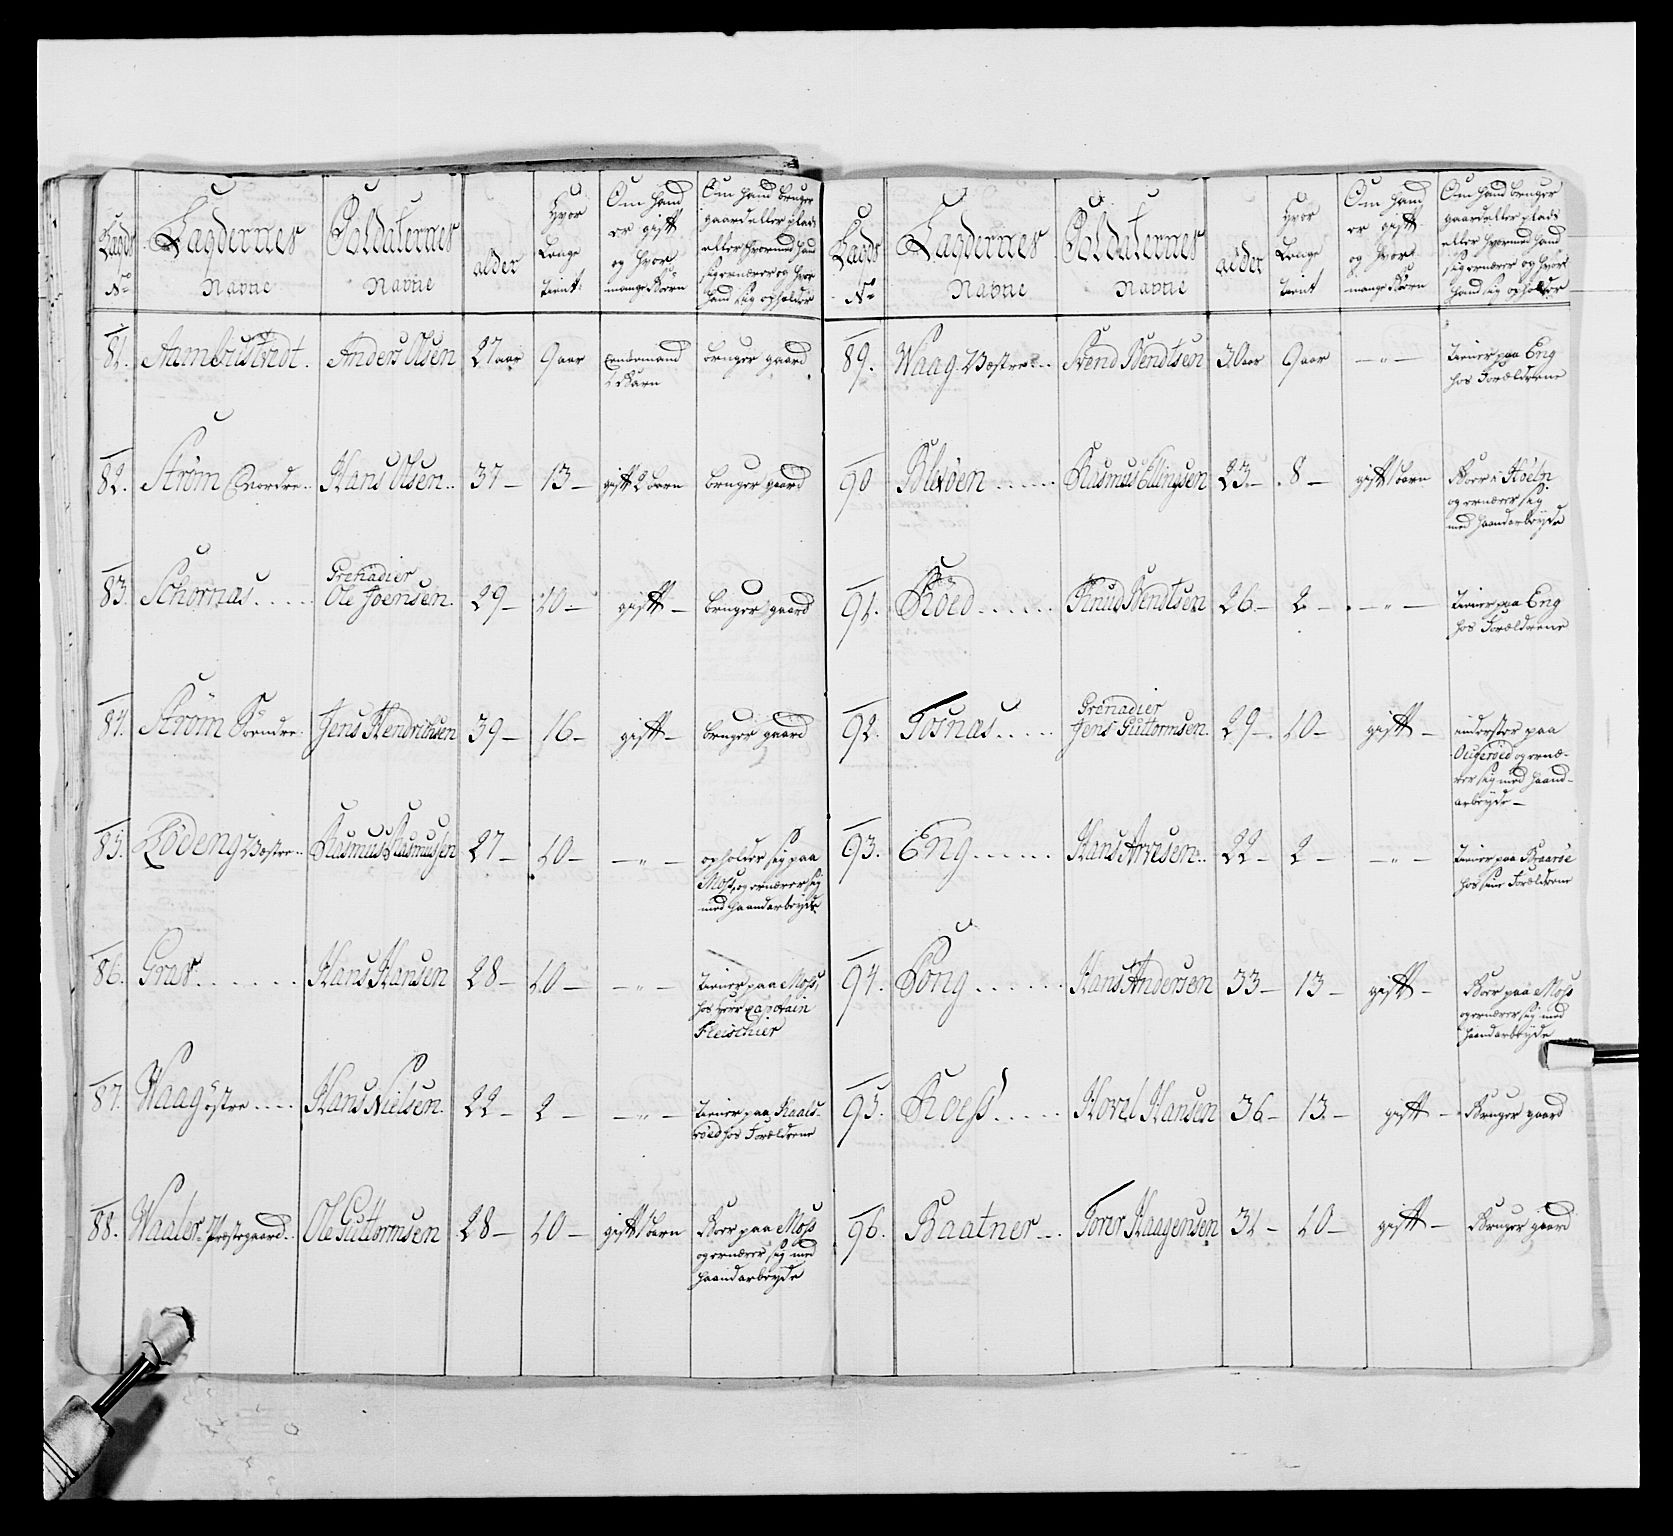 Lagds
No
Lagdernes
Navne
Soldaternes
Navne
alder
Hvor
Lenge
tient
Om hand
er gift
og hvor
mange Børn
Om hand bruger
gaard eller plads
eller hvormed hand
sig ernærer og hvor
hand sig opholder
81. Aambus 27 aar 9 aar bruger gaard
Anders Olsen
2 Barn
82. Strøm Nordre Hans Olsen 37 — 13 — gift 2 barn bruger gaard
83. Schornas Grenadier
Ole Joensen 29 — 10 — gift — bruger gaard
84. Strøm Søndre Jens Hendrichsen 39 — 16 — gift — bruger gaard
85. Lødeng Wæstre Rasmus Rasmusen 27 — 10 — — " — opholder sig paa
Moss, og ernærer sig
med haandarbeyde
86. Grav Hans Hansen 28 — 10 — — " — tiener paa Moss,
hos Herr Capitain
Fleischier
87. Waag østre Hans Nielsen 22 — 2 — — " — tiener paa Kaals-
røed hos Forældrene
88. Waaler Præstegaard Ole Guttormsen 28 — 10 — gift 1 barn Boer paa Moss
og ernærer sig med
haandarbeyde
Lagds
No
Lagdernes
Navne
Soldaternes
Navne
alder
Hvor
Lenge
tient
Om hand
er gift
og hvor
mange Børn
Om hand bruger
gaard eller plads
eller hvormed hand
sig ernærer og hvor
hand sig opholder
89. Waag Wæstre Svend Bendtsen 30 aar 9 aar — " — tiener paa Eng
hos Forældrene
90 Blixøen Rasmus Ellingsen 23 — 8 — gift 1 barn Boer i
og ernærer sig
med haandarbeyde
91. Røed Knud Bendtsen 26 — 2 — — " — tiener paa Eng
hos Forældrene
92. Tosnas Grenadier
Jens Guttormsen 29 — 10 — gift — inderster paa
og ernæ-
rer sig med haand-
arbeyde —
93. Eng Hans Arvesen 22 — 2 — — " — tiener paa Braaroe
hos sine Forældrene
94. Song Hans Andersen 33 — 13 — gift — Boer paa Moss
og ernærer sig med
haandarbeyde
95. Roess Hovel Hansen 36 — 13 — gift — Bruger gaard
96. Baatner Torer Haagensen 31 — 10 — gift — Bruger gaard